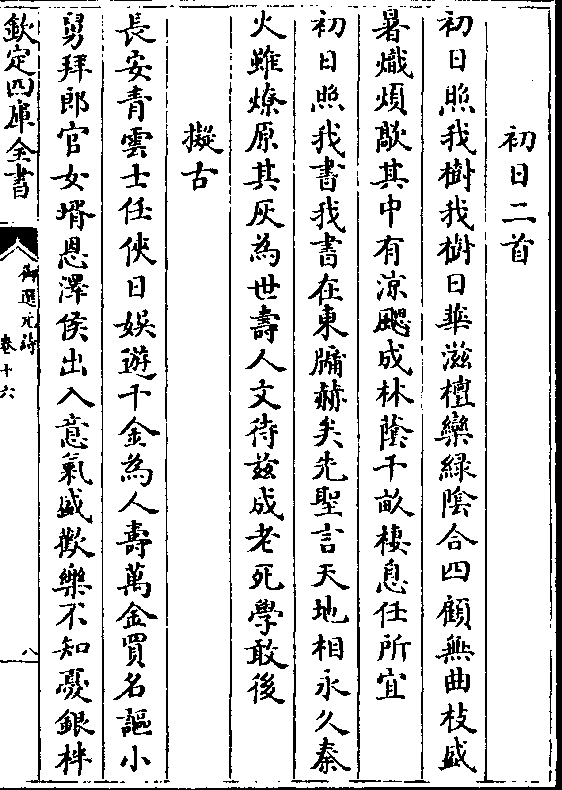 初日二首
初日照我樹我樹日華滋檀欒緑陰合四顧無曲枝盛
暑熾煩歊其中有涼颸成林蔭千畝棲息任所宜
初日照我書我書在東牖赫矣先聖言天地相永久秦
火雖燎原其灰為世壽人文待兹成老死學敢後
擬古
長安青雲士任俠日娛遊千金為人壽萬金買名謳小
舅拜郎官女壻恩澤侯出入意氣盛歡樂不知憂銀柈
欽定四庫全書
御選元詩
卷十六
八